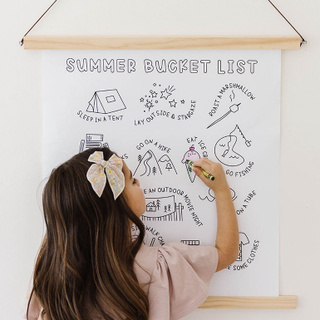 SUMMER BUCKET LIST
SLEEP IN A TENT
LAY OUTSIDE & STARGAZE
ROAST A MARSHMALLOW
GO ON A HIKE
EAT ICE
GO FISHING
AN OUTDOOR MOVIE NIGHT
ON A TUBE